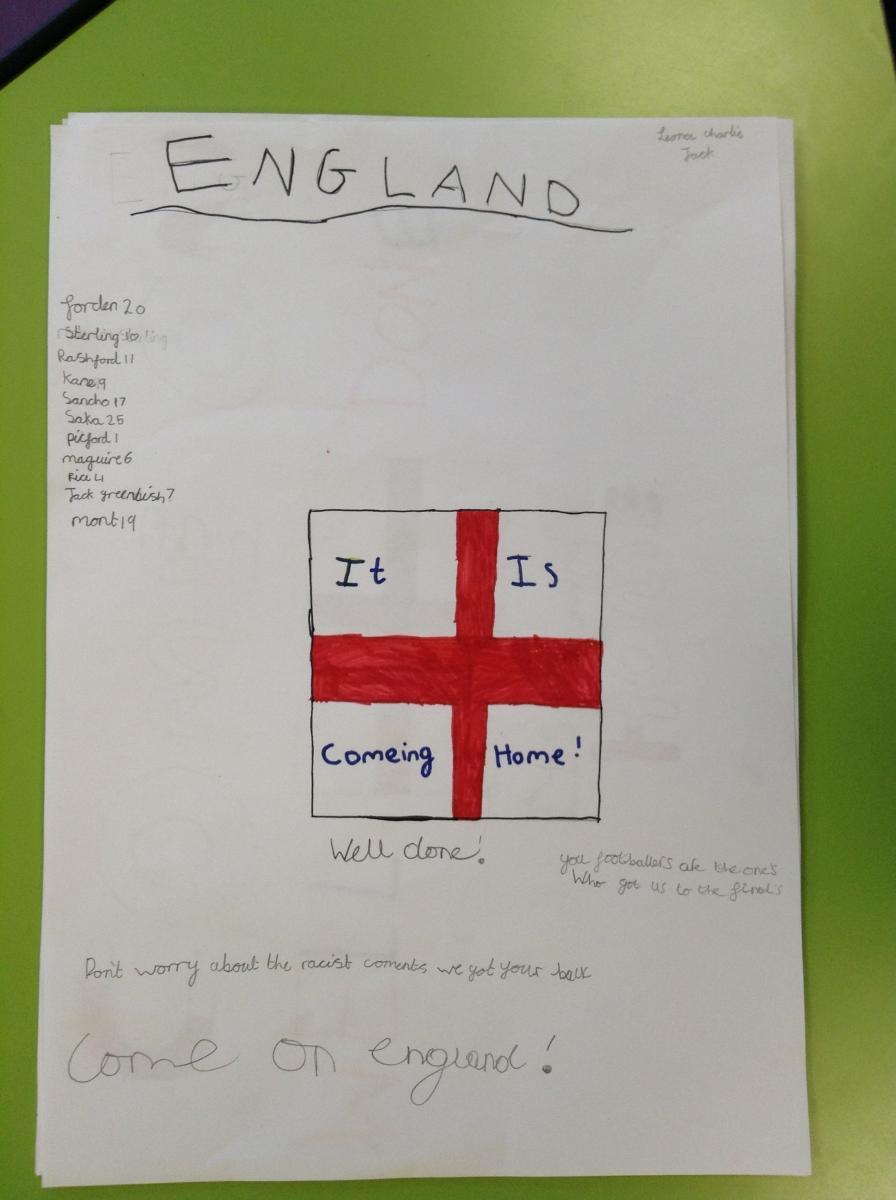 ENGLAND
charlie
Jack
forden 20
Sterling 10
Rashford 11
Kane 9
Sancho 17
Saka 25
picford 1
maguire 6
Rice 4
Jack greenlish 7
mont 19
It Is
Comeing Home!
Well done!
you footballers are the one's
Who got us to the final's
Don't worry about the racist coments we got your back
Come On england!